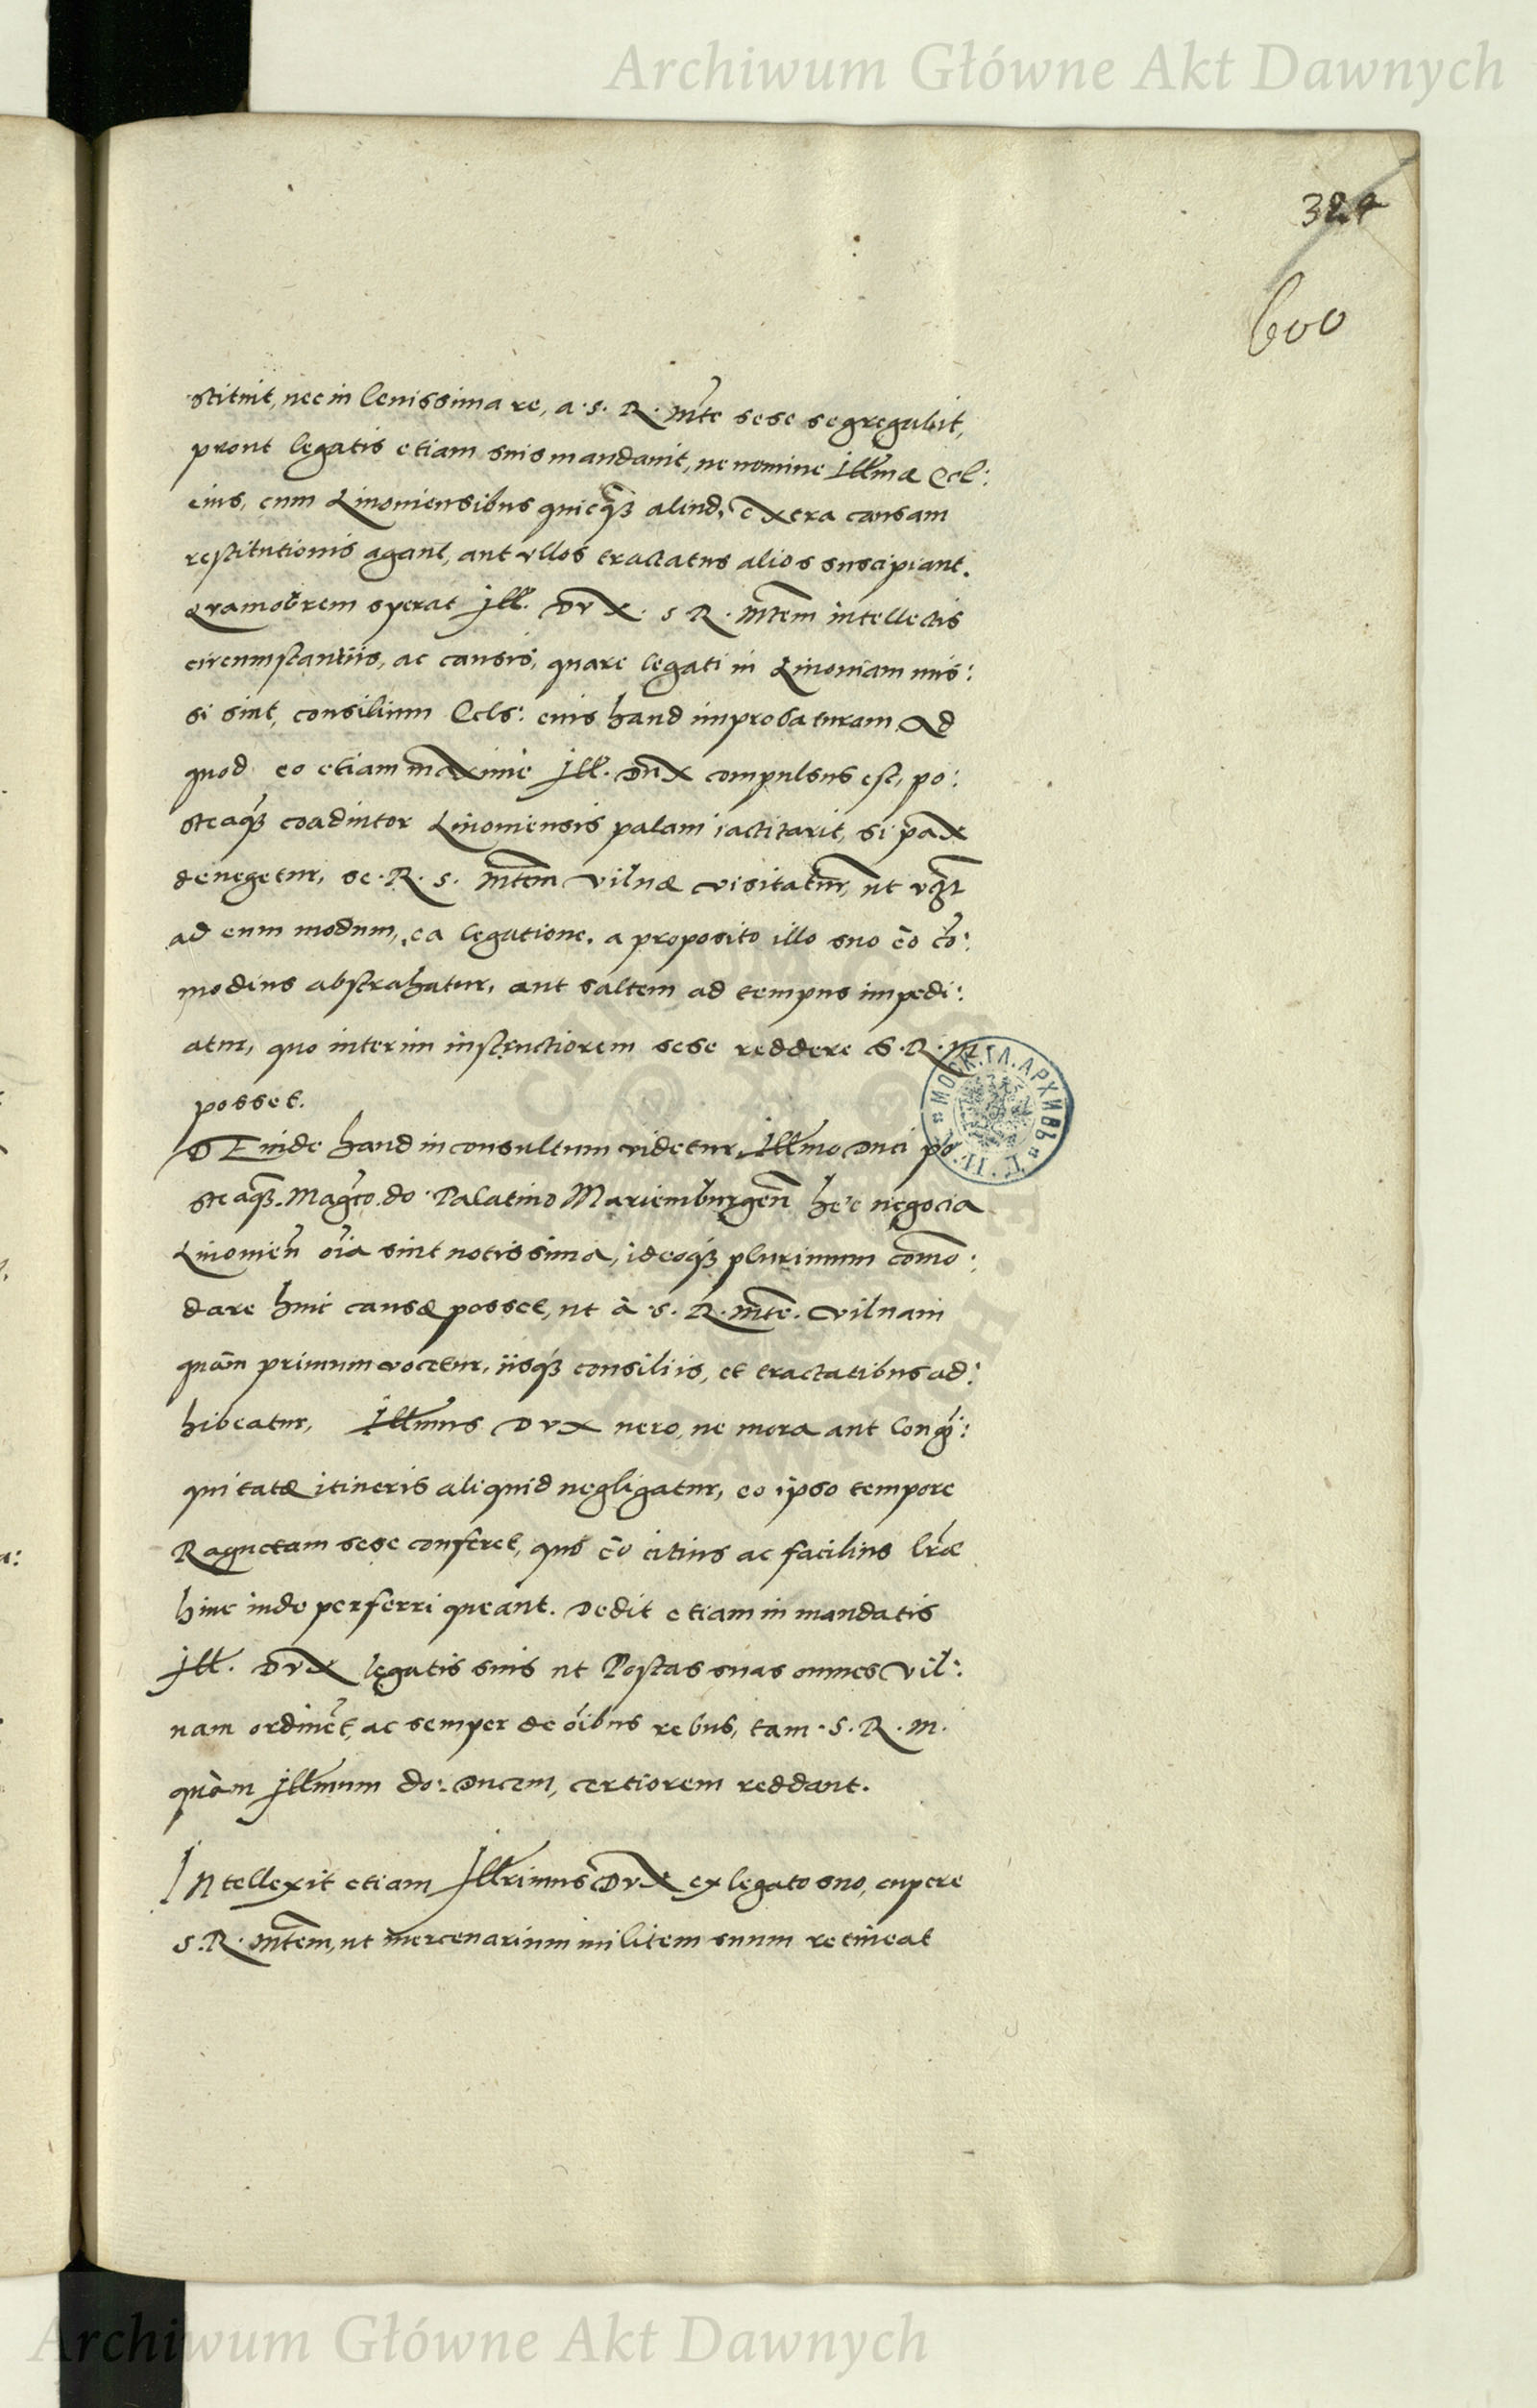 Archiwum Główne Akt Dawnych
324
600
stituit, nec in levissima re, a. S. R. Mte sese segregabit,
prout legatis etiam suis mandavit, ne nomine Illmæ Cel:
eius, cum Livoniensibus quicq̃ꝫ aliud, extra causam
restitutionis agant, aut ullos tractatus alios suscipiant.
Quamobrem sperat Ill. Dux. S R. Mtem intellectis
circumstantiis, ac causis, quare legati in Livoniam mis:
si sint, consilium Cels: eius haud improbaturam. Ad
quod eo etiam maxime Ill. Dux compulsus est, po:
steaqꝫ coadiutor Livoniensis palam iactitarit, si pax
denegetur, se. R. S. Mtem Vilnæ visitatur, ut
ad eum modum, ea legatione, a proposito illo suo eo cõ:
modius abstrahatur, aut saltem ad tempus impedi:
atur, quo interim instructiorem sese reddere S. R. M.
posset.
DEinde haud inconsultum videtur, Illmo Duci po
steaqꝫ. Magco. do. Palatino Mariemburgen̄ hec negocia
Livonien̄ oīa sint notissima, ideoqꝫ plurimum com̄o:
dare huic causæ posset, ut à S. R. Mte. Vilnam
quàm primum vocetur, iisqꝫ consiliis, et tractatibus ad:
hibeatur, Illmus Dux vero, ne mora aut longi:
quitatæ itineris aliquid negligatur, eo ipso tempore
Ragnetam sese conferet, quo eo citius ac facilius lræ
hinc inde perferri queant. Dedit etiam in mandatis
Ill. Dux legatis suis ut Postas suas omnes Vil:
nam ordinet, ac semper de oībus rebus, tam. S. R. M.
quàm Illmum do: Ducem, certiorem reddant.
INtellexit etiam Illrimus Dux ex legato suo, cupere
S. R. Mtem, ut mercenarium militem suum retineat
МОСК. ГЛ. АРХИВЪ
Archiwum Główne Akt Dawnych